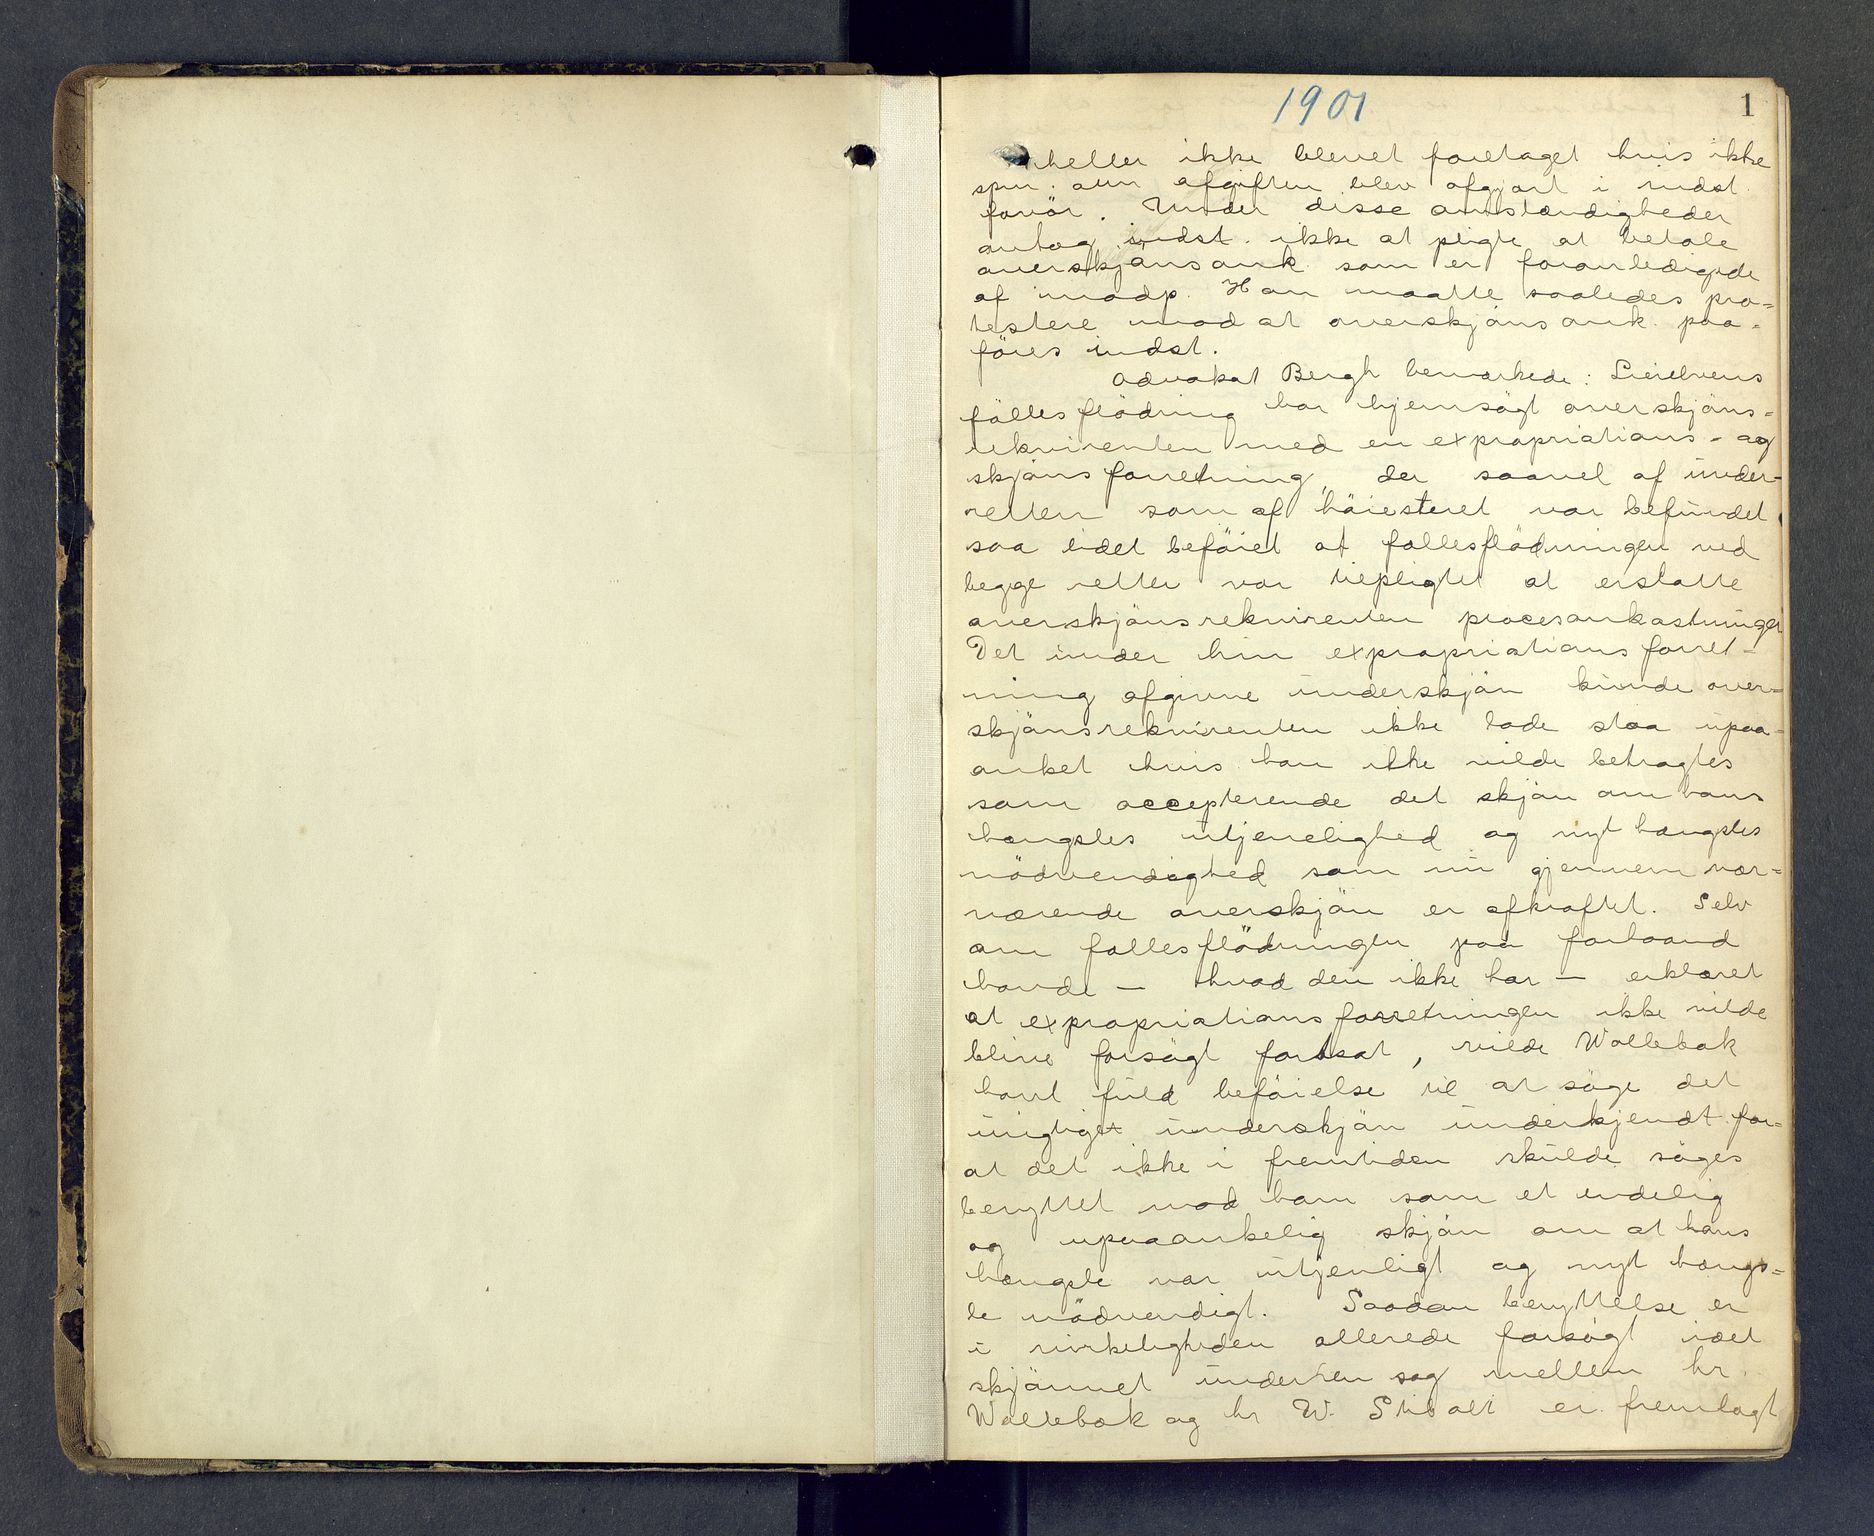 1901
1
heller ikke blevet foretaget hvis ikke
spm. om afgiften blev afgjort i indst.
favör. Under disse omstændigheder
antog indst. ikke at pligte at betale
overskjönsomk. som er foranlediget
af modp. Han maatte saaledes pro-
testere mod at overskjönsomk. paa-
föres indst.
Advokat Bergh bemærkede: Lierelvens
fällesflödning har hjemsögt overskjöns-
rekvirenten med en expropriations- og
skjönsforretning, der saavel af under-
retten som af höiesteret var befundet
saa lidet beföiet at fællesflödningen ved
begge retter var tilpligtet at erstatte
overskjönsrekvirenten procesomkostninger
Det under hin expropriationsforret-
ning afgivne underskjön kunde over-
skjönsrekvirenten ikke lade staa upaa-
anket hvis han ikke vilde betragtes
som accepterende det skjön om hans
hængsles utjenelighed og nyt hængsles
nödvendighed som nu gjennem nær-
værende overskjön er afkræftet. Selv
om fællesflödningen paa forhaand
havde — hvad den ikke har — erklæret
at expropriationsforretningen ikke vilde
blive forsögt fortsat, vilde Wollebæk
havt fuld beföielse til at söge det
urigtige underskjön underkjendt for-
at det ikke i fremtiden skulde söges
benyttet mod ham som et endelig
og upaaankelig skjön om at hans
hængsle var utjenligt og nyt hængs-
le nödvendigt. Saadan benyttelse er
i virkeligheden allerede forsögt idet
skjönnet under en sag mellem hr.
Wollebæk og hr W. Stibolt er fremlagt